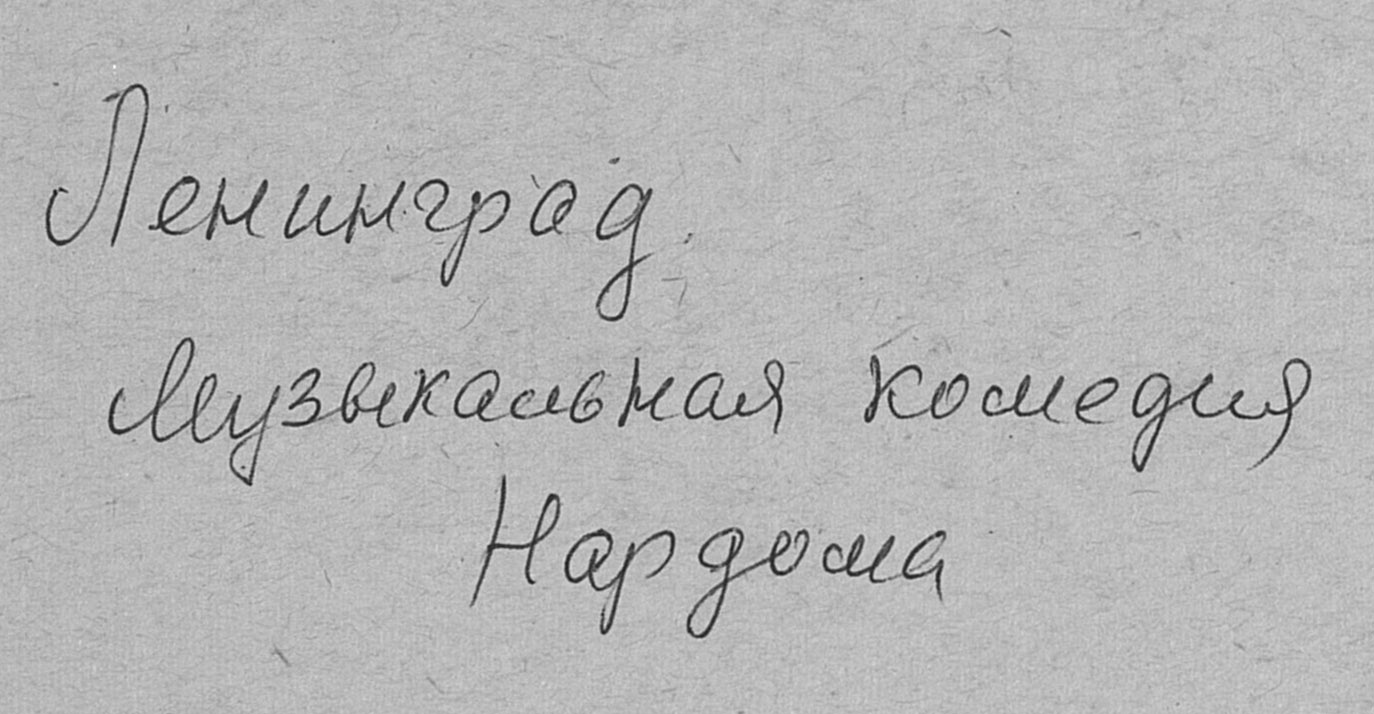 Ленинград.
Музыкальная комедия
Нардома